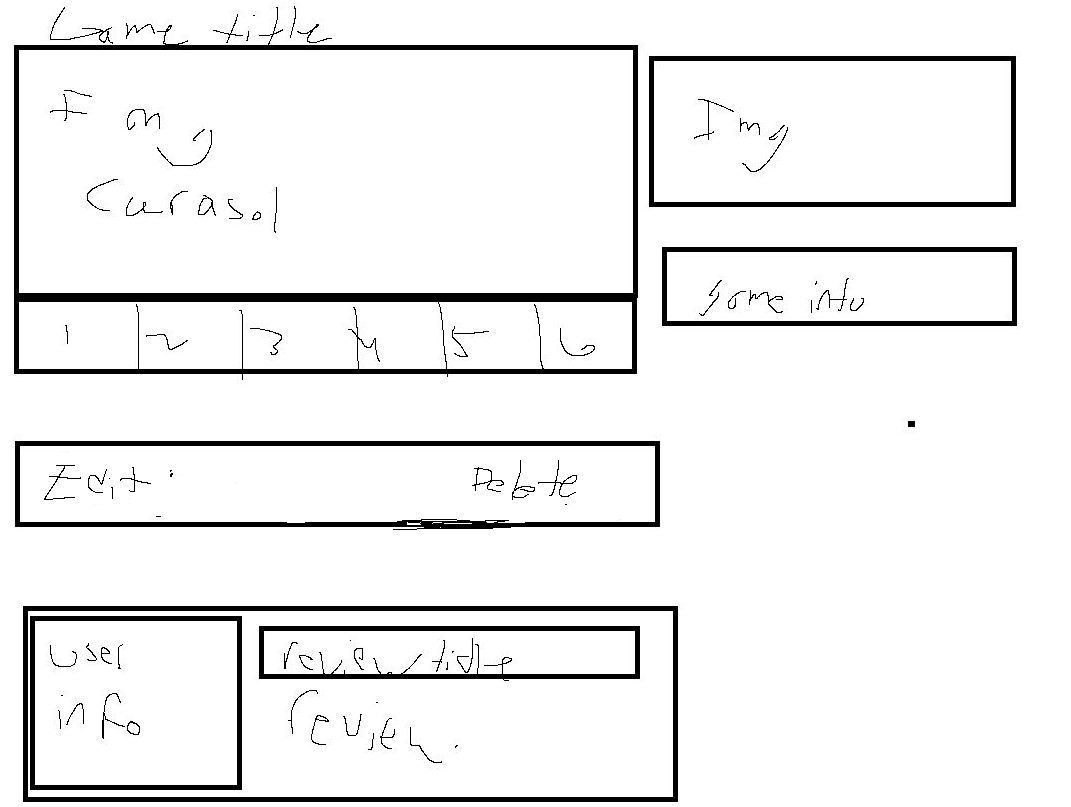 Game title
Img
Curasol
1 2 3 4 5 6
Img
Some info
Edit Delete
user
info
review title
review